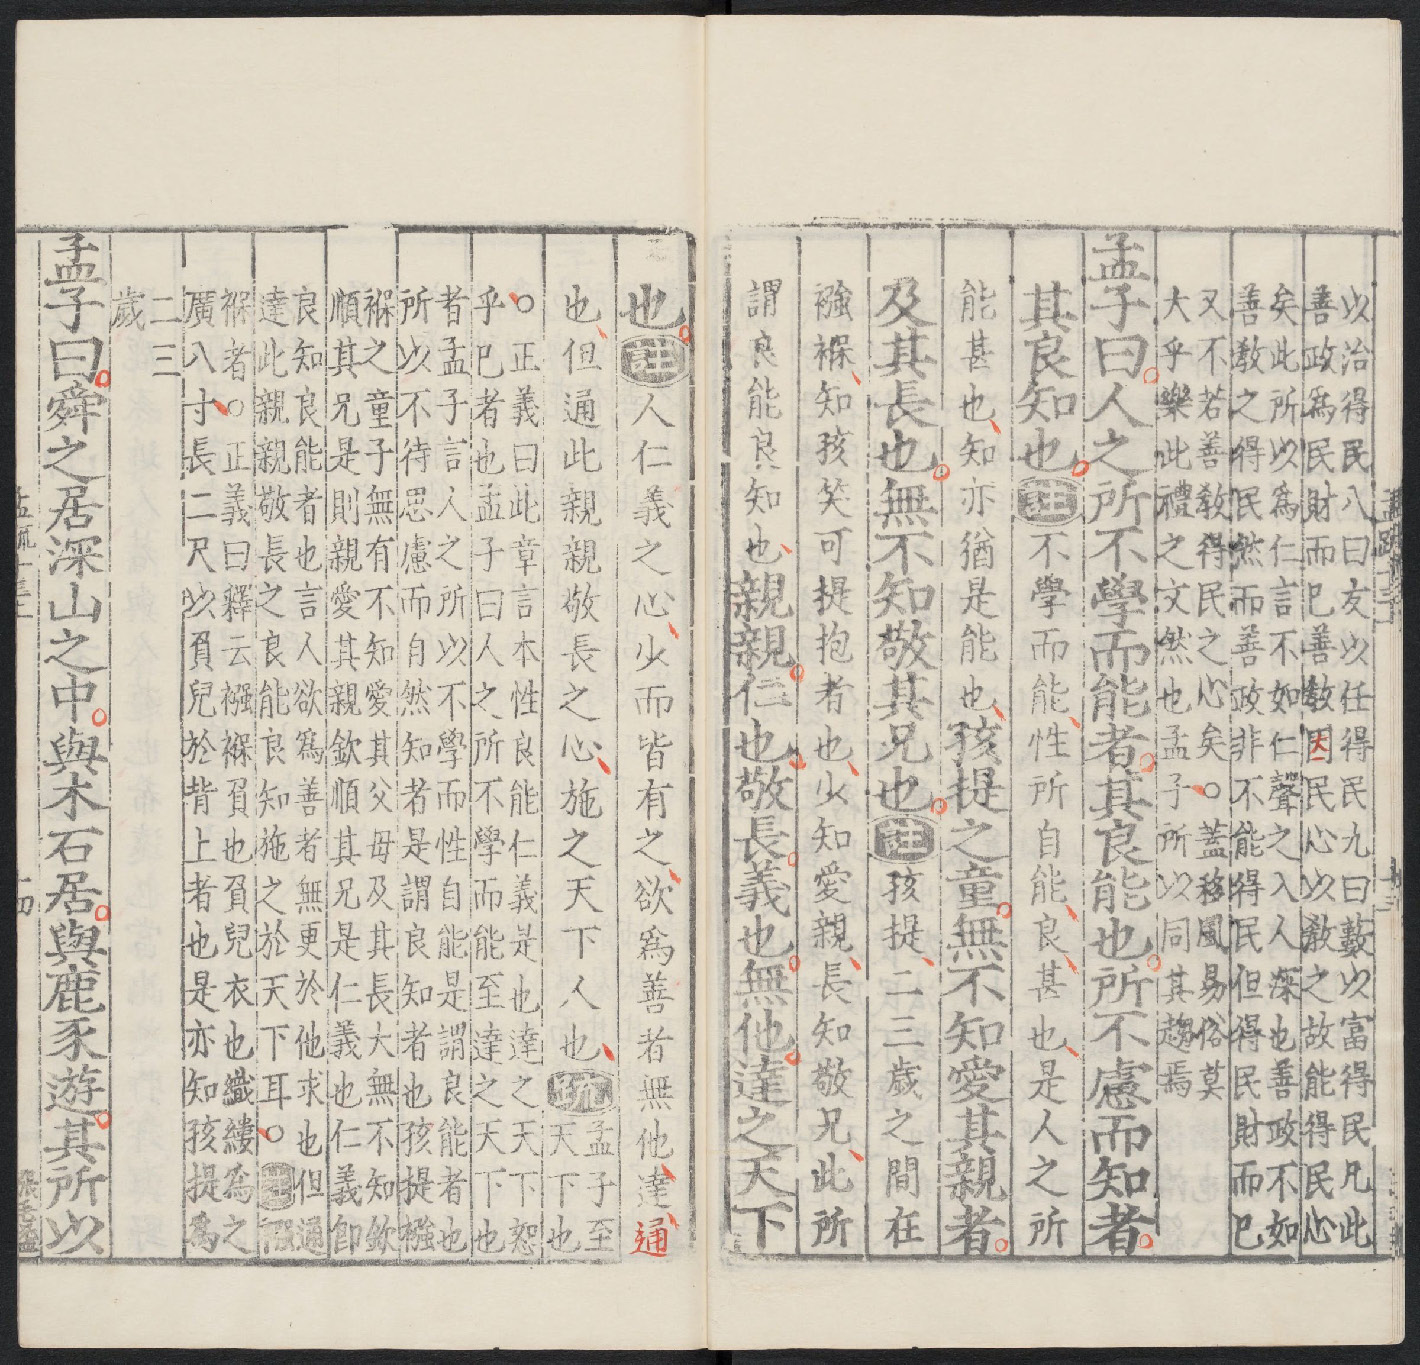 以治得民八曰友以任得民九曰藪以富得民凡此
善政為民財而已善教因民心以教之故能得民心
矣此所以為仁言不如仁聲之入人深也善政不如
善教之得民然而善政非不能得民但得民財而已
又不若善教得民之心矣○蓋移風易俗莫
大乎樂此禮之文然也孟子所以同其趨焉
孟子曰人之所不學而能者其良能也所不慮而知者
其良知也註不學而能性所自能良甚也是人之所
能甚也知亦猶是能也孩提之童無不知愛其親者
及其長也無不知敬其兄也註孩提二三歲之間在
襁褓知孩笑可提抱者也少知愛親長知敬兄此所
謂良能良知也親親仁也敬長義也無他達之天下
也註人仁義之心少而皆有之欲為善者無他達通
也但通此親親敬長之心施之天下人也疏孟子至
天下也
○正義曰此章言本性良能仁義是也達之天下恕
乎已者也孟子曰人之所不學而能至達之天下也
者孟子言人之所以不學而性自能是謂良能者也
所以不待思慮而自然知者是謂良知者也孩提襁
褓之童子無有不知愛其父母及其長大無不知欽
順其兄是則親愛其親欽順其兄是仁義也仁義即
良知良能者也言人欲為善者無更於他求也但通
達此親親敬長之良能良知施之於天下耳○註襁
褓者○正義曰釋云襁褓負也負兒衣也織縷為之
廣八寸長二尺以負兒於背上者也是亦知孩提為
二三
歲
孟子曰舜之居深山之中與木石居與鹿豕遊其所以